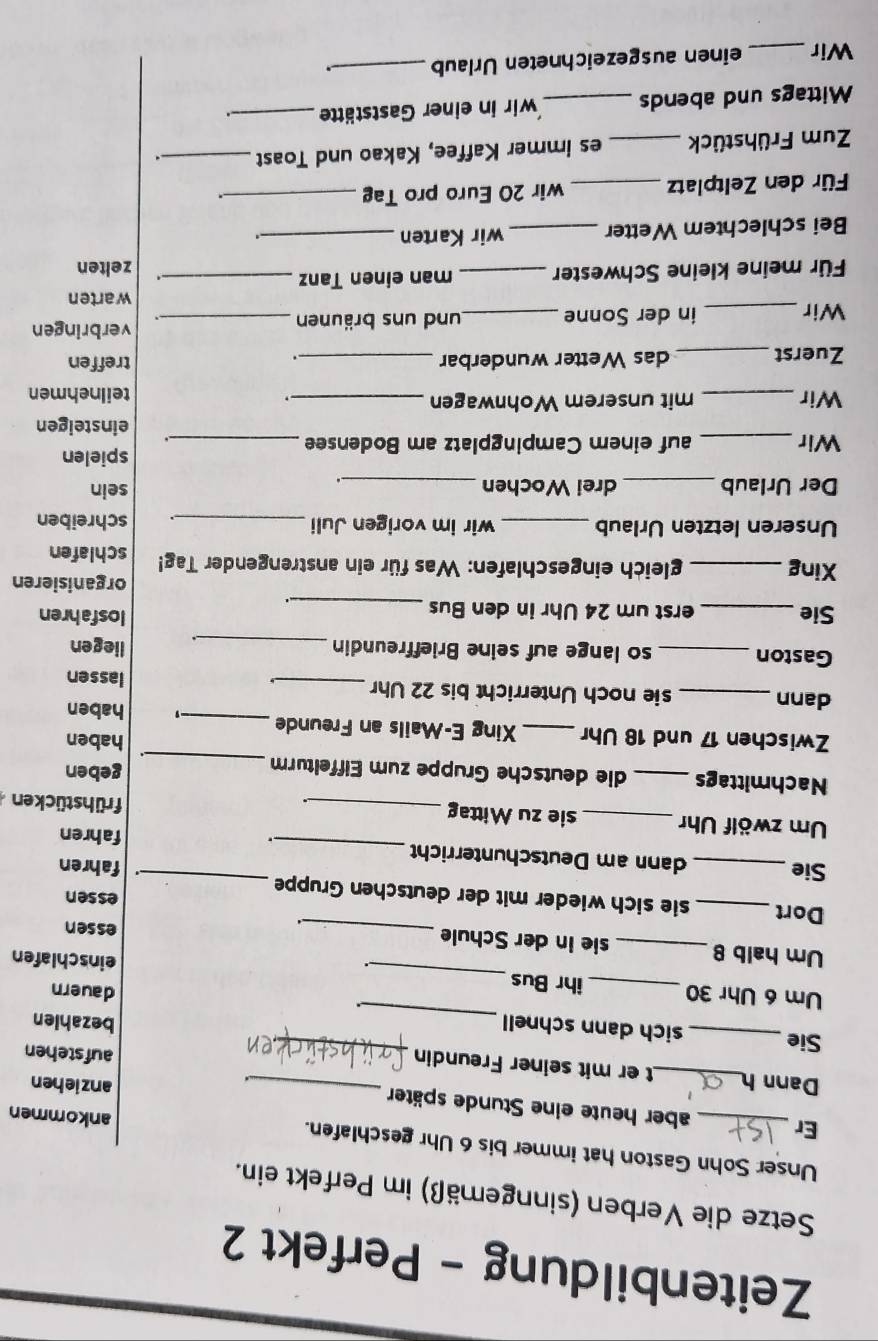 Zeitenbildung - Perfekt 2
Setze die Verben (sinngemäß) im Perfekt ein.
Unser Sohn Gaston hat immer bis 6 Uhr geschlafen.
Er ist aber heute eine Stunde später ________.
Dann h a t er mit seiner Freundin frühstücken.
Sie ________ sich dann schnell ________.
Um 6 Uhr 30 ________ ihr Bus ________.
Um halb 8 ________ sie in der Schule ________.
Dort ________ sie sich wieder mit der deutschen Gruppe ________.
Sie ________ dann am Deutschunterricht ________.
Um zwölf Uhr ________ sie zu Mittag ________.
Nachmittags ________ die deutsche Gruppe zum Eiffelturm ________.
Zwischen 17 und 18 Uhr ________ Xing E-Mails an Freunde ________,
dann ________ sie noch Unterricht bis 22 Uhr ________.
Gaston ________ so lange auf seine Brieffreundin ________.
Sie ________ erst um 24 Uhr in den Bus ________.
Xing ________ gleich eingeschlafen: Was für ein anstrengender Tag!
Unseren letzten Urlaub ________ wir im vorigen Juli ________.
Der Urlaub ________ drei Wochen ________.
Wir ________ auf einem Campingplatz am Bodensee ________.
Wir ________ mit unserem Wohnwagen ________.
Zuerst ________ das Wetter wunderbar ________.
Wir ________ in der Sonne ________ und uns bräunen ________.
Für meine kleine Schwester ________ man einen Tanz ________.
Bei schlechtem Wetter ________ wir Karten ________.
Für den Zeltplatz ________ wir 20 Euro pro Tag ________.
Zum Frühstück ________ es immer Kaffee, Kakao und Toast ________.
Mittags und abends ________ wir in einer Gaststätte ________.
Wir ________ einen ausgezeichneten Urlaub ________.
ankommen
anziehen
aufstehen
bezahlen
dauern
einschlafen
essen
essen
fahren
fahren
frühstücken
geben
haben
haben
lassen
liegen
losfahren
organisieren
schlafen
schreiben
sein
spielen
einsteigen
teilnehmen
treffen
verbringen
warten
zelten